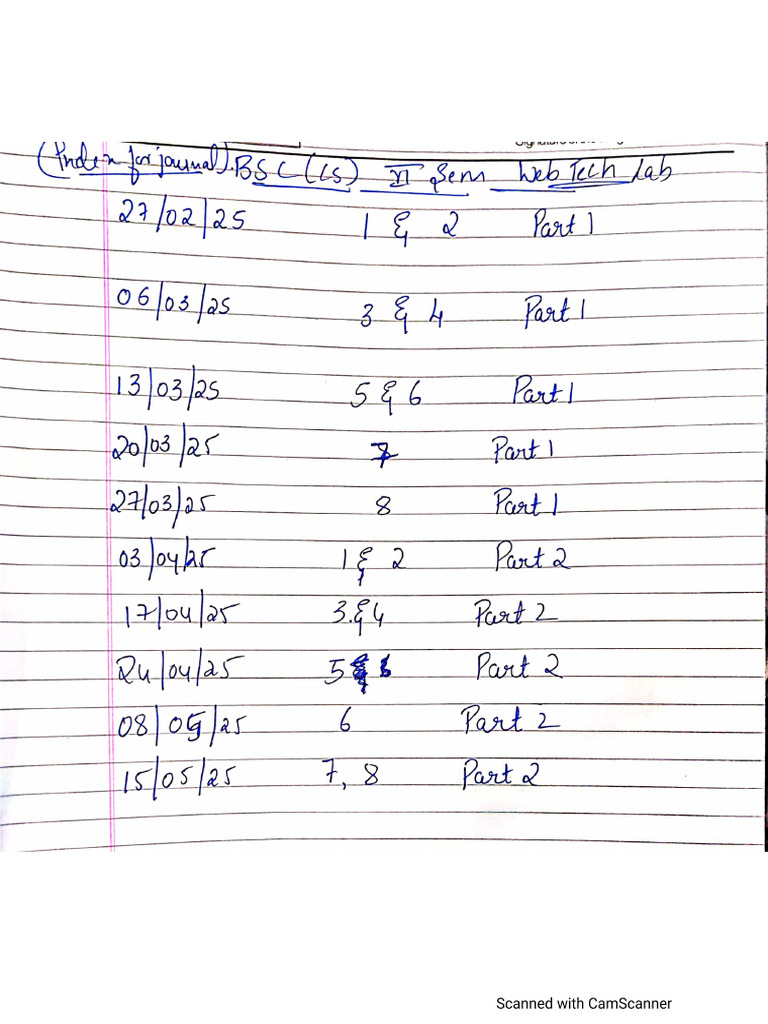 (Index for journal). BSC (CS) Sem Web Tech Lab
27/02/25 1 & 2 Part 1
06/03/25 3 & 4 Part 1
13/03/25 5 & 6 Part 1
20/03/25 7 Part 1
27/03/25 8 Part 1
03/04/25 1 & 2 Part 2
17/04/25 3 & 4 Part 2
24/04/25 5 Part 2
08/05/25 6 Part 2
15/05/25 7, 8 Part 2
Scanned with CamScanner